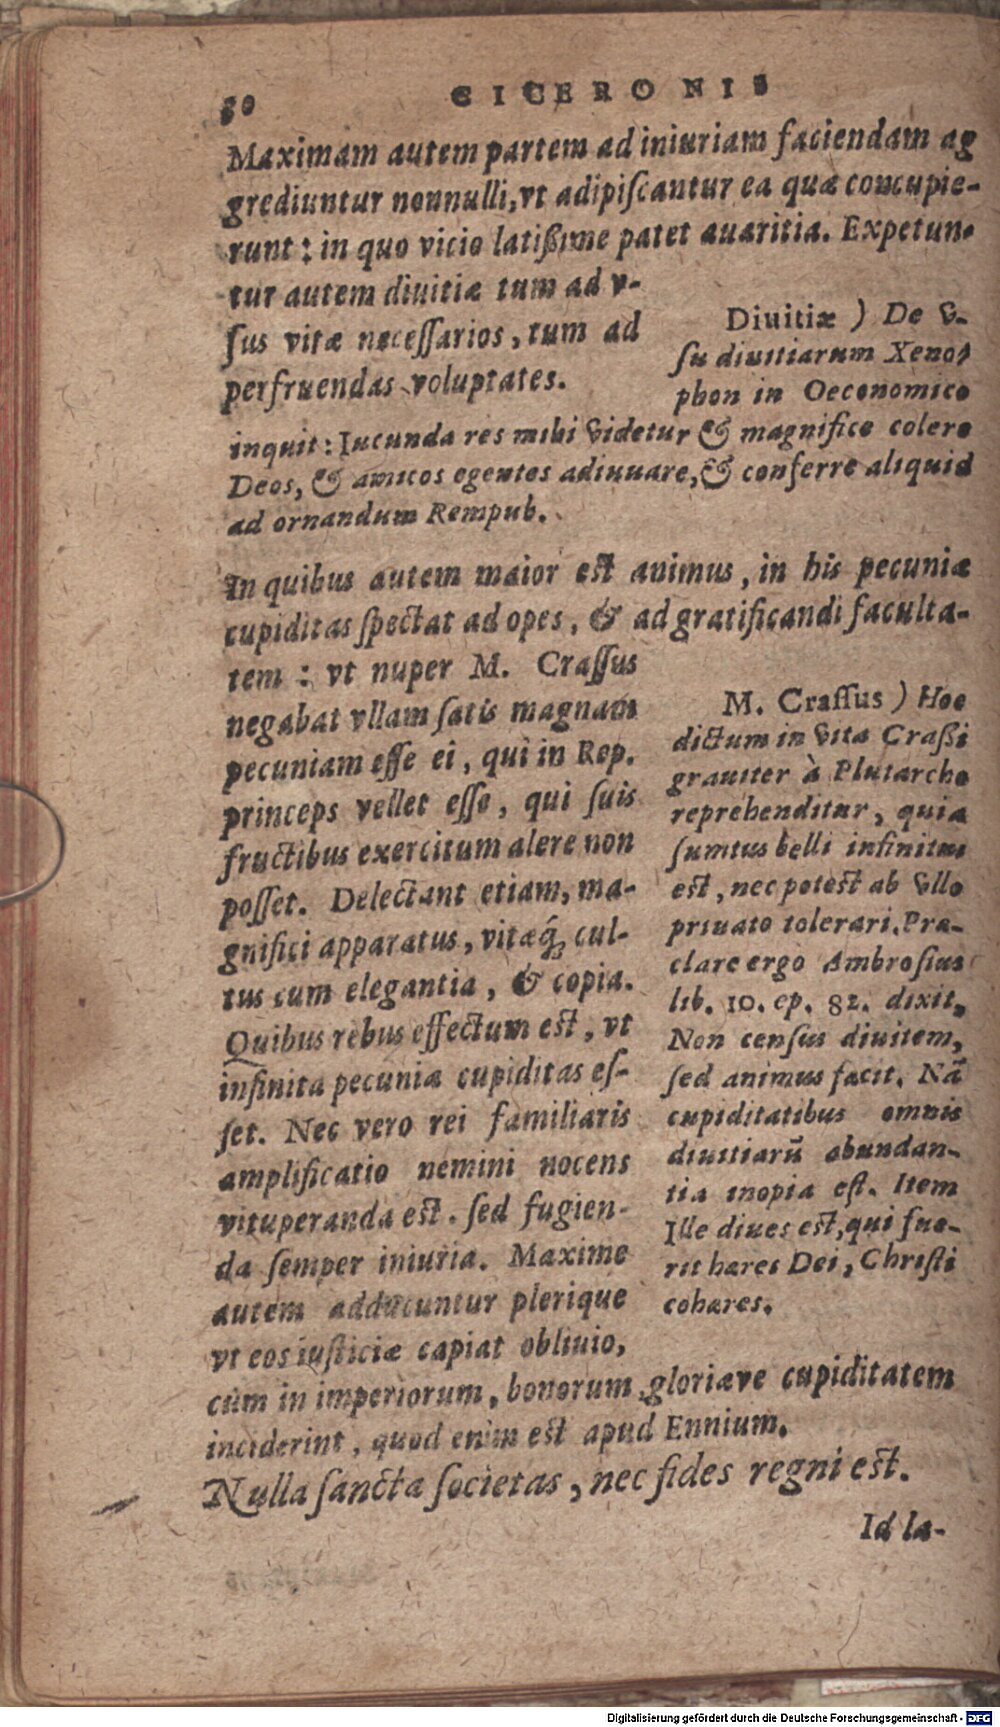 30 CICERONIS
Maximam autem partem ad iniuriam faciendam ag
grediuntur nonnulli, vt adipiſcantur ea quæ concupie-
runt: in quo vicio latißime patet auaritia. Expetun-
tur autem diuitiæ tum ad v-
ſus vitæ neceſſarios, tum ad
perfruendas voluptates.
Diuitiæ ) De v-
ſu diuitiarum Xeno-
phon in Oeconomico
inquit: Iucunda res mihi videtur & magnifice colere
Deos, & amicos egentes adiuuare, & conferre aliquid
ad ornandum Rempub.
In quibus autem maior est animus, in his pecuniæ
cupiditas ſpectat ad opes, & ad gratificandi faculta-
tem: vt nuper M. Craſſus
negabat vllam ſatis magnam
pecuniam eſſe ei, qui in Rep.
princeps vellet eſſe, qui ſuis
fructibus exercitum alere non
poſſet. Delectant etiam, ma-
gnifici apparatus, vitæq́; cul-
tus cum elegantia, & copia.
Quibus rebus effectum est, vt
infinita pecuniæ cupiditas eſ-
ſet. Nec vero rei familiaris
amplificatio nemini nocens
vituperanda est. ſed fugien-
da ſemper iniuria. Maxime
autem adducuntur plerique
vt eos iuſticiæ capiat obliuio,
M. Craſſus ) Hoc
dictum in vita Craßi
grauiter à Plutarcho
reprehenditur, quia
ſumtus belli infinitus
est, nec potest ab vllo
priuato tolerari. Præ-
clare ergo Ambroſius
lib. 10. ep. 82. dixit,
Non cenſus diuitem,
ſed animus facit. Nã
cupiditatibus omnis
diuitiarũ abundan-
tia inopia eſt. Item
Ille diues est, qui fue-
rit hæres Dei, Chriſti
cohæres.
cùm in imperiorum, honorum gloriæve cupiditatem
inciderint, quod enim est apud Ennium.
Nulla ſancta ſocietas, nec fides regni est.
Id la-
Digitalisierung gefördert durch die Deutsche Forschungsgemeinschaft - DFG